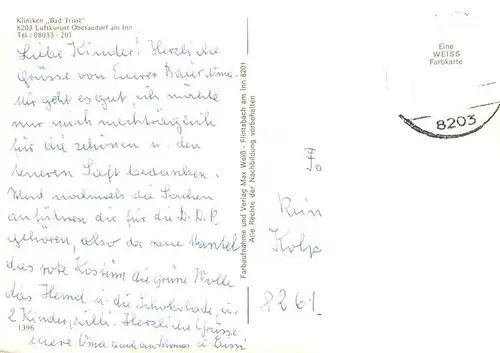 Kliniken „Bad Trissl"
8203 Luftkurort Oberaudorf am Inn
Tel.: 08033 - 201
Liebe Kinder! Herzliche
Grüsse von Eurer Baier Oma.
Mir geht es gut, ich möchte
mir noch nachträglich
für die schönen u. den
teueren Saft bedanken.
Und nochmals die Sachen
anführen die für die D.D.R
gehören, also der neue Mantel
das rote Kostüm die grüne Wolle
das Hemd u. die Schokolade, u.
2 Kinder Herzliche Grüsse
eure Oma auch an u.
1396
Farbaufnahme und Verlag Max Weiß - Flintsbach am Inn 8201
Alle Rechte der Nachbildung vorbehalten
Eine
WEISS
Farbkarte
8203
Fa
Kolp
8261